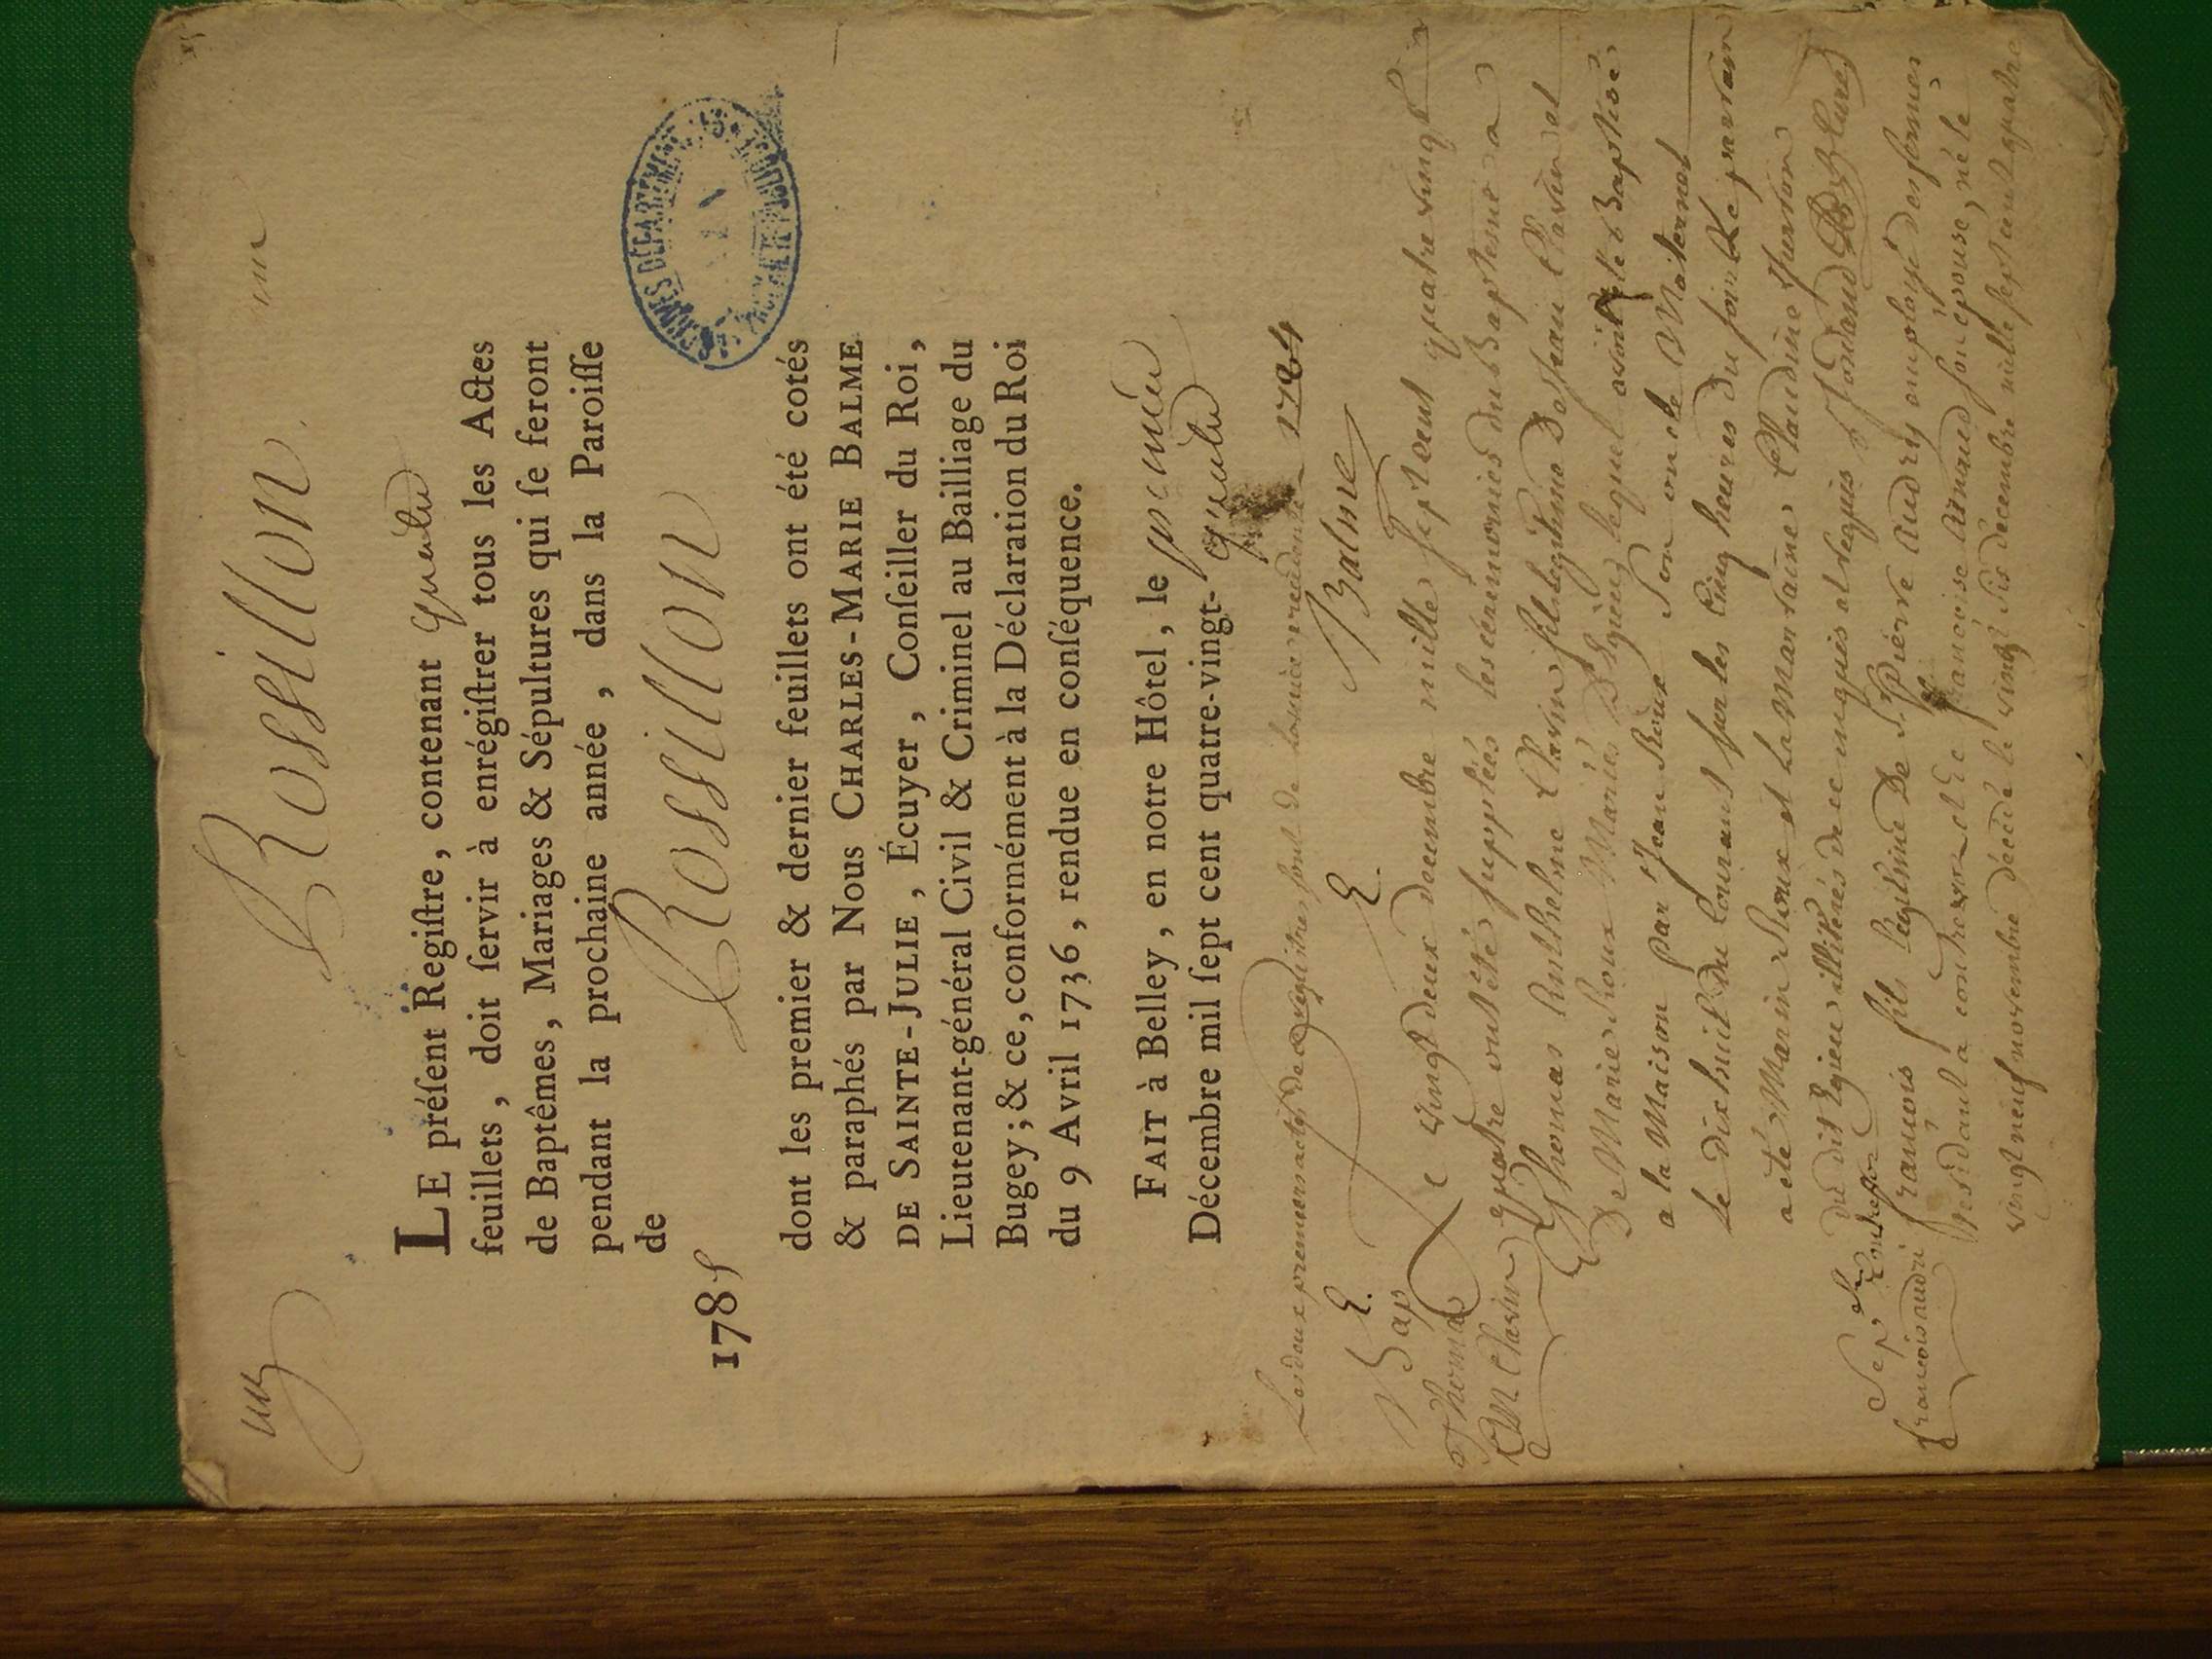 un
Rossillon.
LE préſent Regiſtre, contenant quatre
feuillets, doit ſervir à enrégiſtrer tous les Actes
de Baptêmes, Mariages & Sépultures qui ſe feront
pendant la prochaine année, dans la Paroiſſe
de Rossillon
1785
dont les premier & dernier feuillets ont été cotés
& paraphés par Nous CHARLES-MARIE BALME
DE SAINTE-JULIE, Écuyer, Conſeiller du Roi,
Lieutenant-général Civil & Criminel au Bailliage du
Bugey; & ce, conformément à la Déclaration du Roi
du 9 Avril 1736, rendue en conſéquence.
FAIT à Belley, en notre Hôtel, le premier
Décembre mil ſept cent quatre-vingt-quatre
Les deux premiers actes de ce registre sont de l'année 1784
Balme
Bap
Thomas
Clavin
Le vingt deux decembre mille sept cent quatre vingt
quatre ont été suppléés les cérémonies du Bapteme a
Thomas Anthelme Clavin fils légitime de Clavin et
De Marie Sioux Mariés lequel avoit été Baptisé
a la Maison par Jean Sioux Son oncle Maternel
le dixhuit du Courant sur les Cinq heures du soir Le parrain
a été Marin Sioux et La Marraine Claudine
du dit illitérés de ce enquis et requis Curé
Sep
francois audri
françois fils légitime De Sr Pierre Audry employé des fermes
résidant a et de francoise Arnaud son epouse, né le
vingt neuf novembre décédé le vingt six decembre mille sept cent quatre